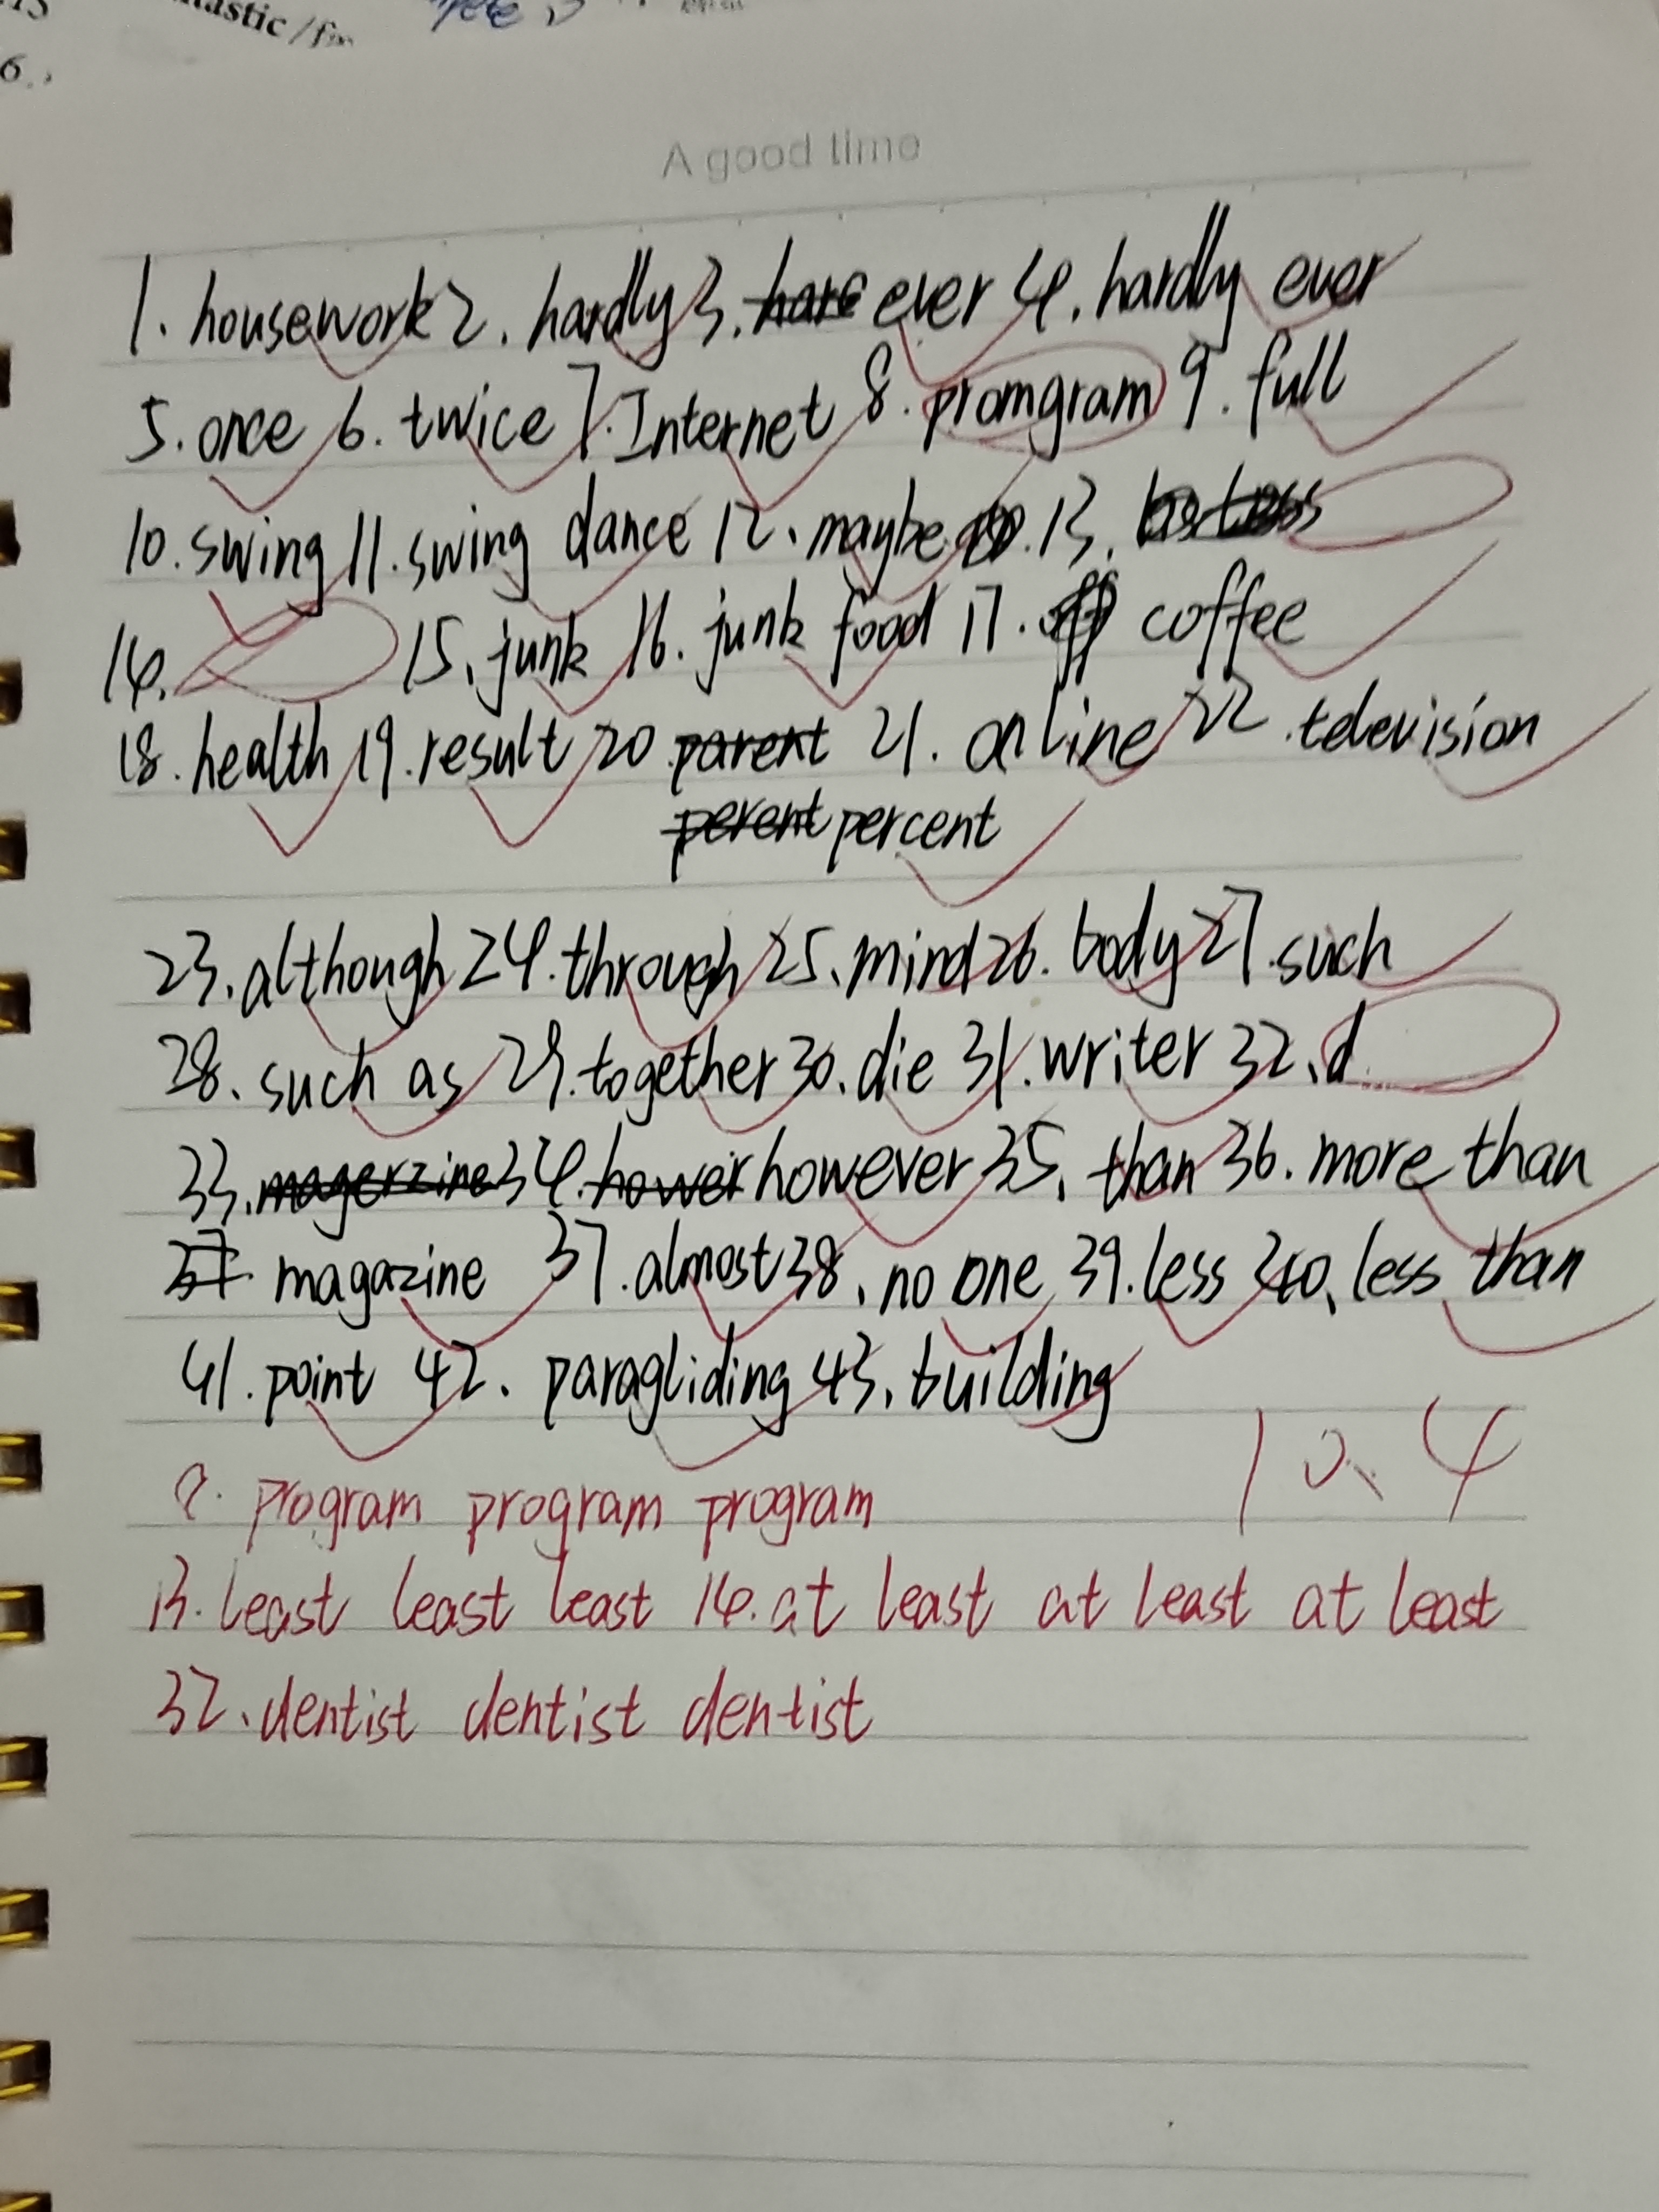 A good time
1. housework 2. hardly 3. ever 4. hardly ever
5. once 6. twice 7. Internet 8. promgram 9. full
10. swing 11. swing dance 12. maybe 13.
14. 15. junk 16. junk food 17. coffee
18. health 19. result 20 parent 21. online 22. television
perent percent
23. although 24. through 25. mind 26. body 27. such
28. such as 29. together 30. die 31. writer 32. d
33. magerzine 34. hower however 35. than 36. more than
37 magazine 37. almost 38. no one 39. less 40. less than
41. point 42. paragliding 43. building
10.4
8. program program program
13. least least least 14. at least at least at least
32. dentist dentist dentist